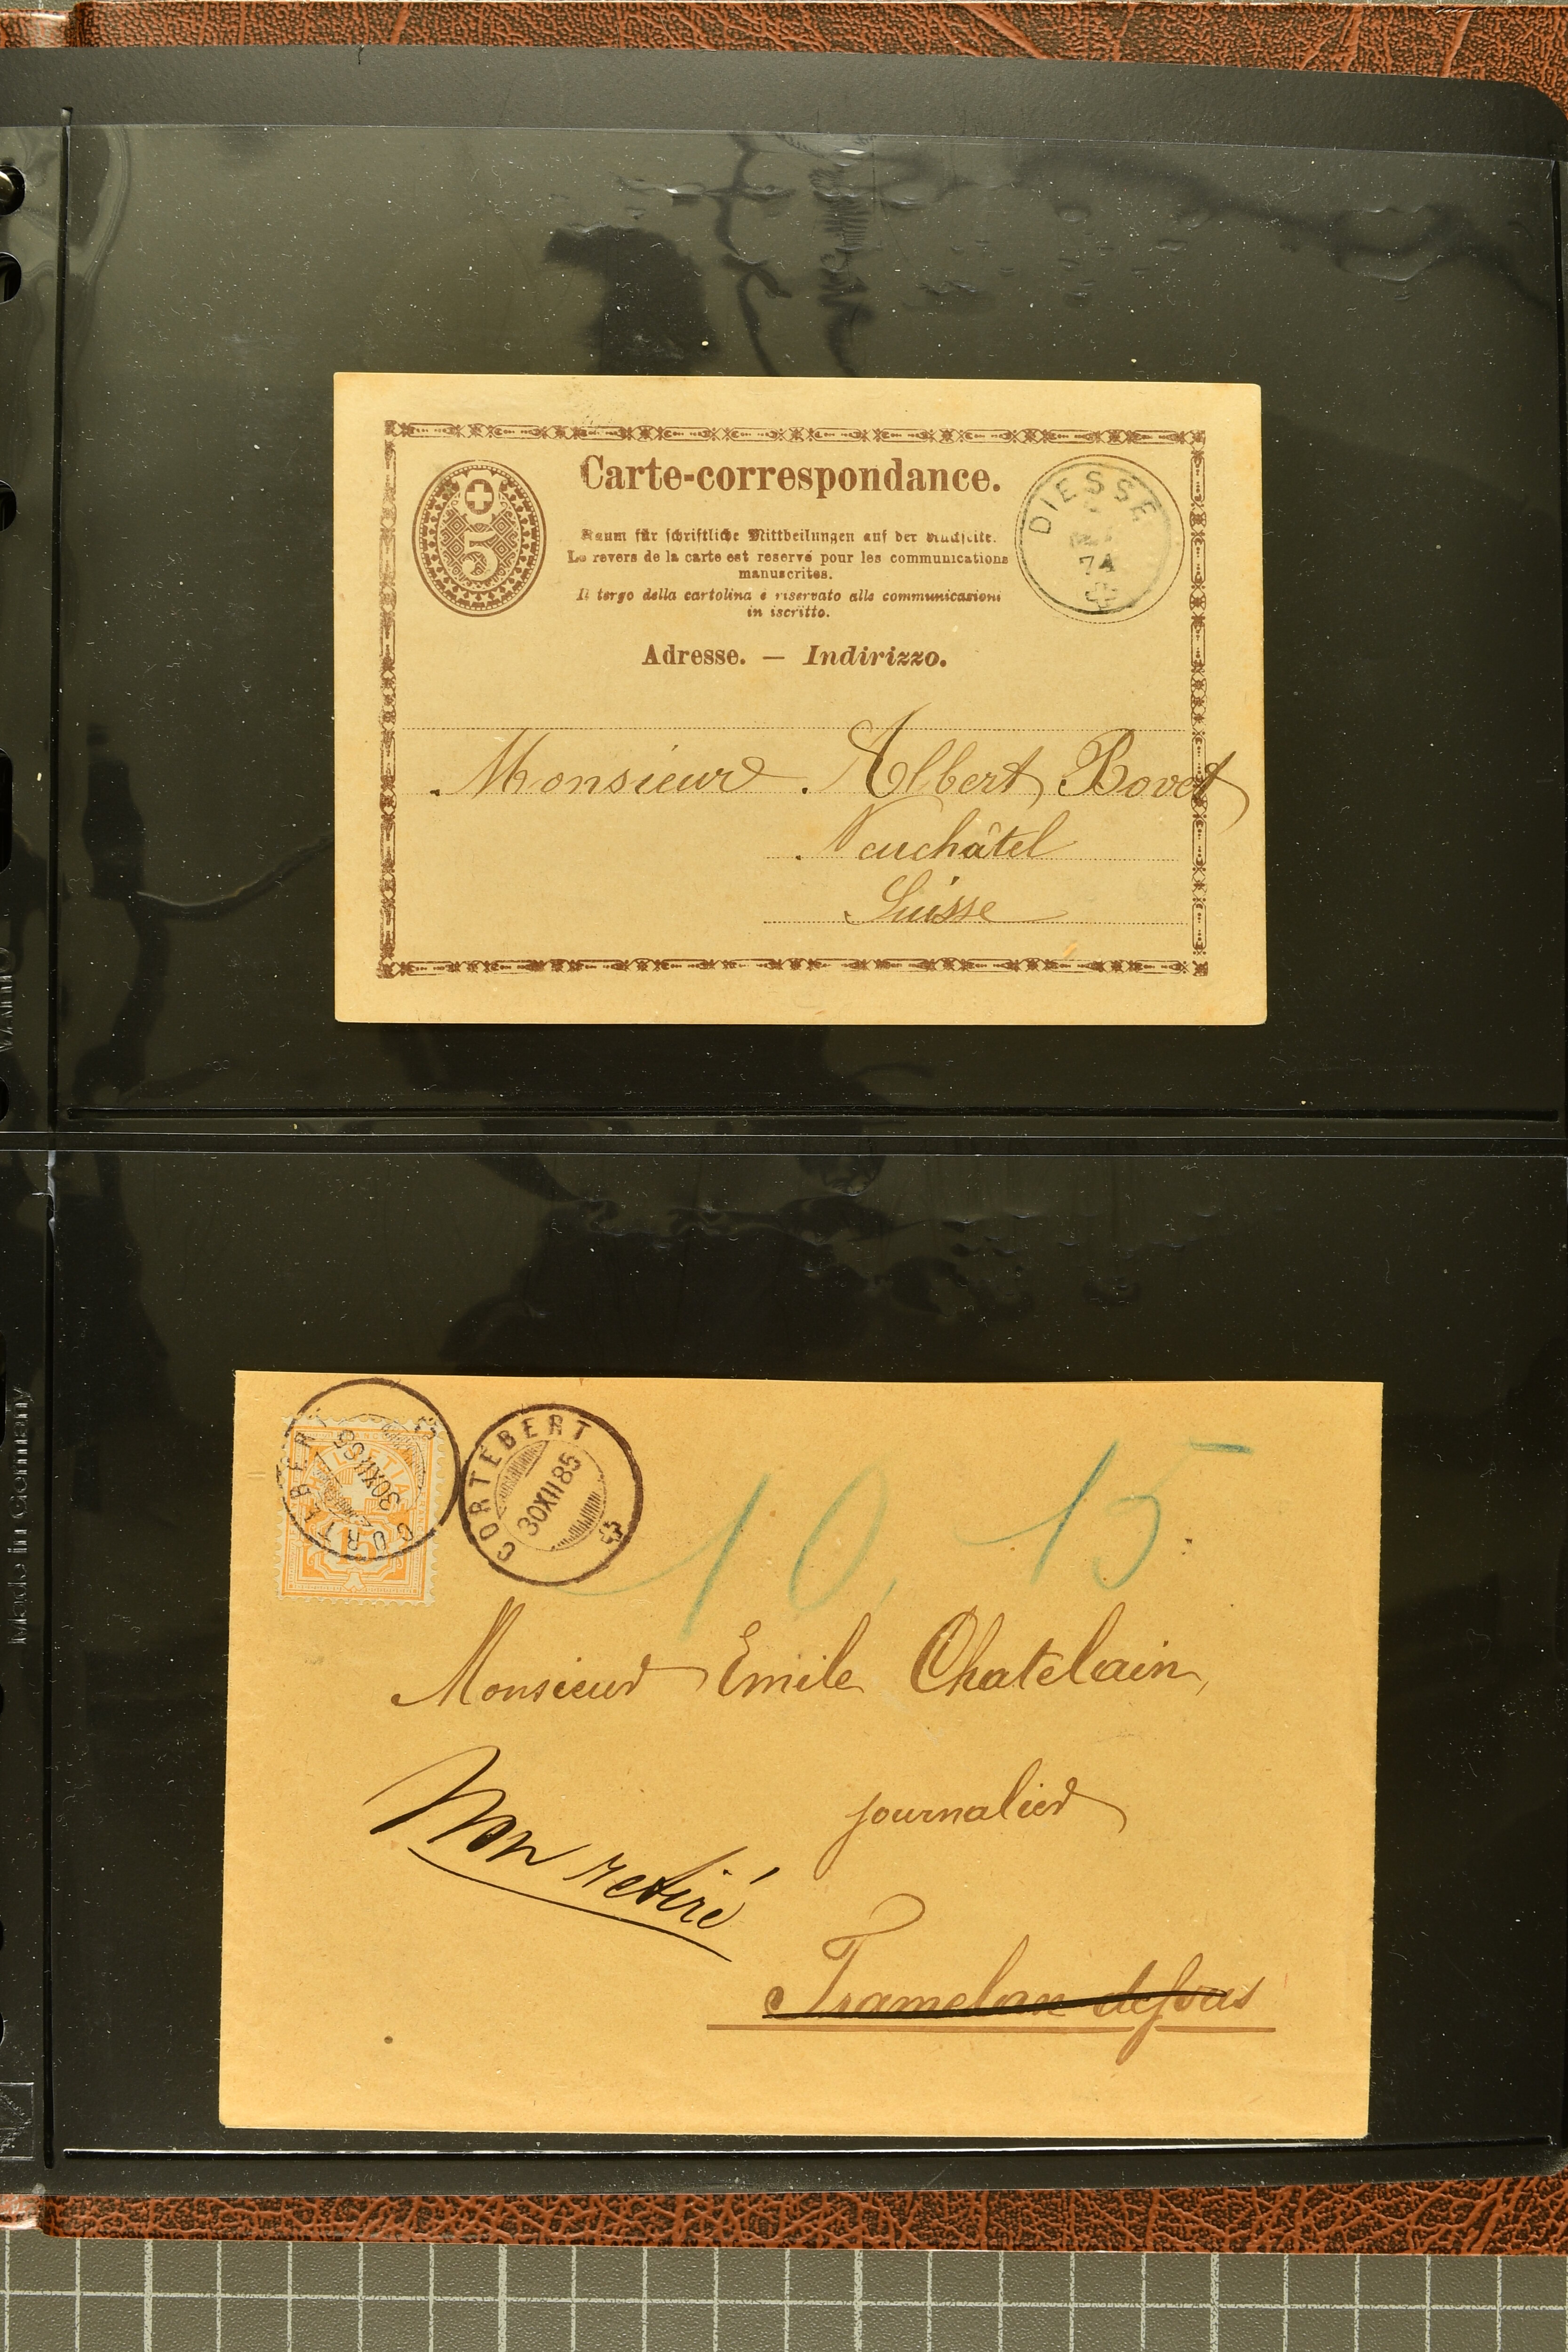 Carte-correspondance.
5
Raum für schriftliche Mittheilungen auf der Rückseite.
Le revers de la carte est reservé pour les communications
manuscrites.
Il tergo della cartolina è riservato alle communicazioni
in iscritto.
DIESSE
74
Adresse. — Indirizzo.
Monsieur Albert Bovet
Neuchâtel
Suisse
CORTÉBERT
30XII85
CORTÉBERT
30XII85
15
10. 15
Monsieur Emile Chatelain,
journalier
Non retiré
Tramelan dessous
Made in Germany